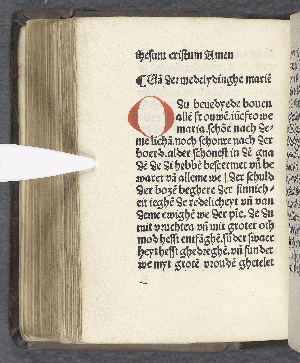 ihesum cristum Amen
¶ Uā der medelydinghe marie
O Du benedyede bouen
alle frouwē. iūcfrowe
maria. schoē nach de-
me lichā. noch schonre nach der
boerd. alder schonest in dē gna
dē de di hebbē bescermet vñ be
waret vñ alleme we / der schuld
der bozē beghere der sinnich-
en ieghē de redelicheyt vñ van
deme ewighē we der pie. de du
mit vruchten vñ mit groter oth
mod heffst entfāghē. sūder swaer
heyt heffst ghedreghē. vñ sunder
we myt grotē vroudē ghetelet